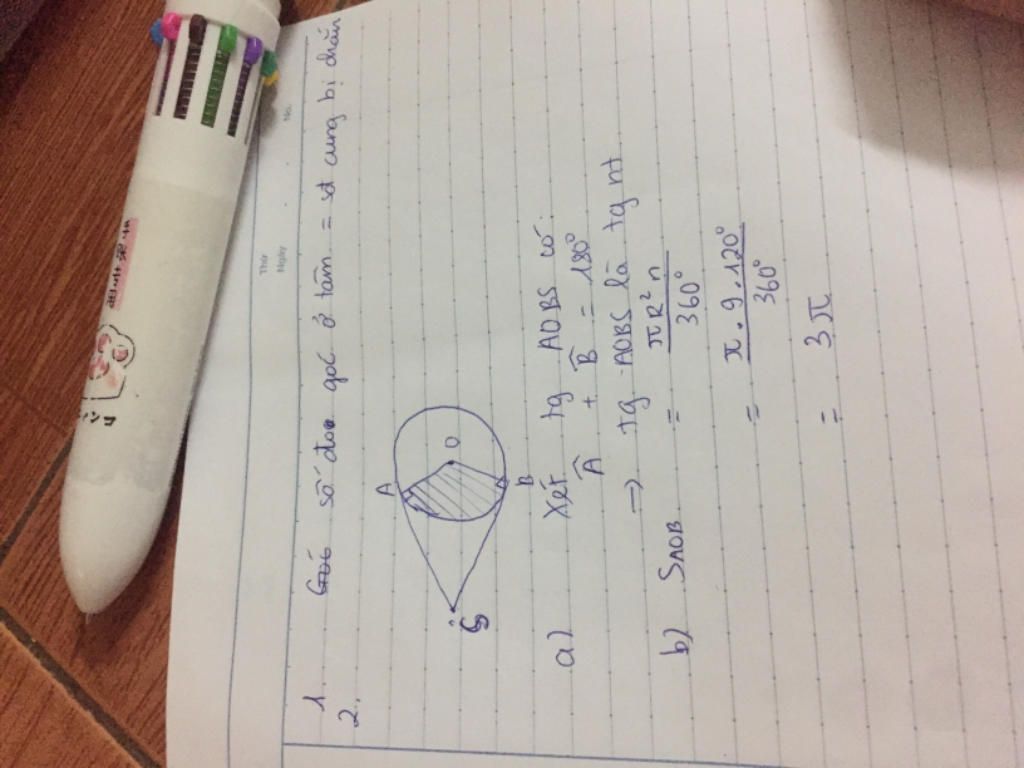 Thứ
Ngày
No.
1. Góc số đo góc ở tâm = sđ cung bị chắn
2.
A
O
S
B
a) Xét tg AOBS có:
Â + B̂ = 180°
=> tg AOBS là tg nt
b) SAOB = πR²n / 360°
= π.9.120° / 360°
= 3π